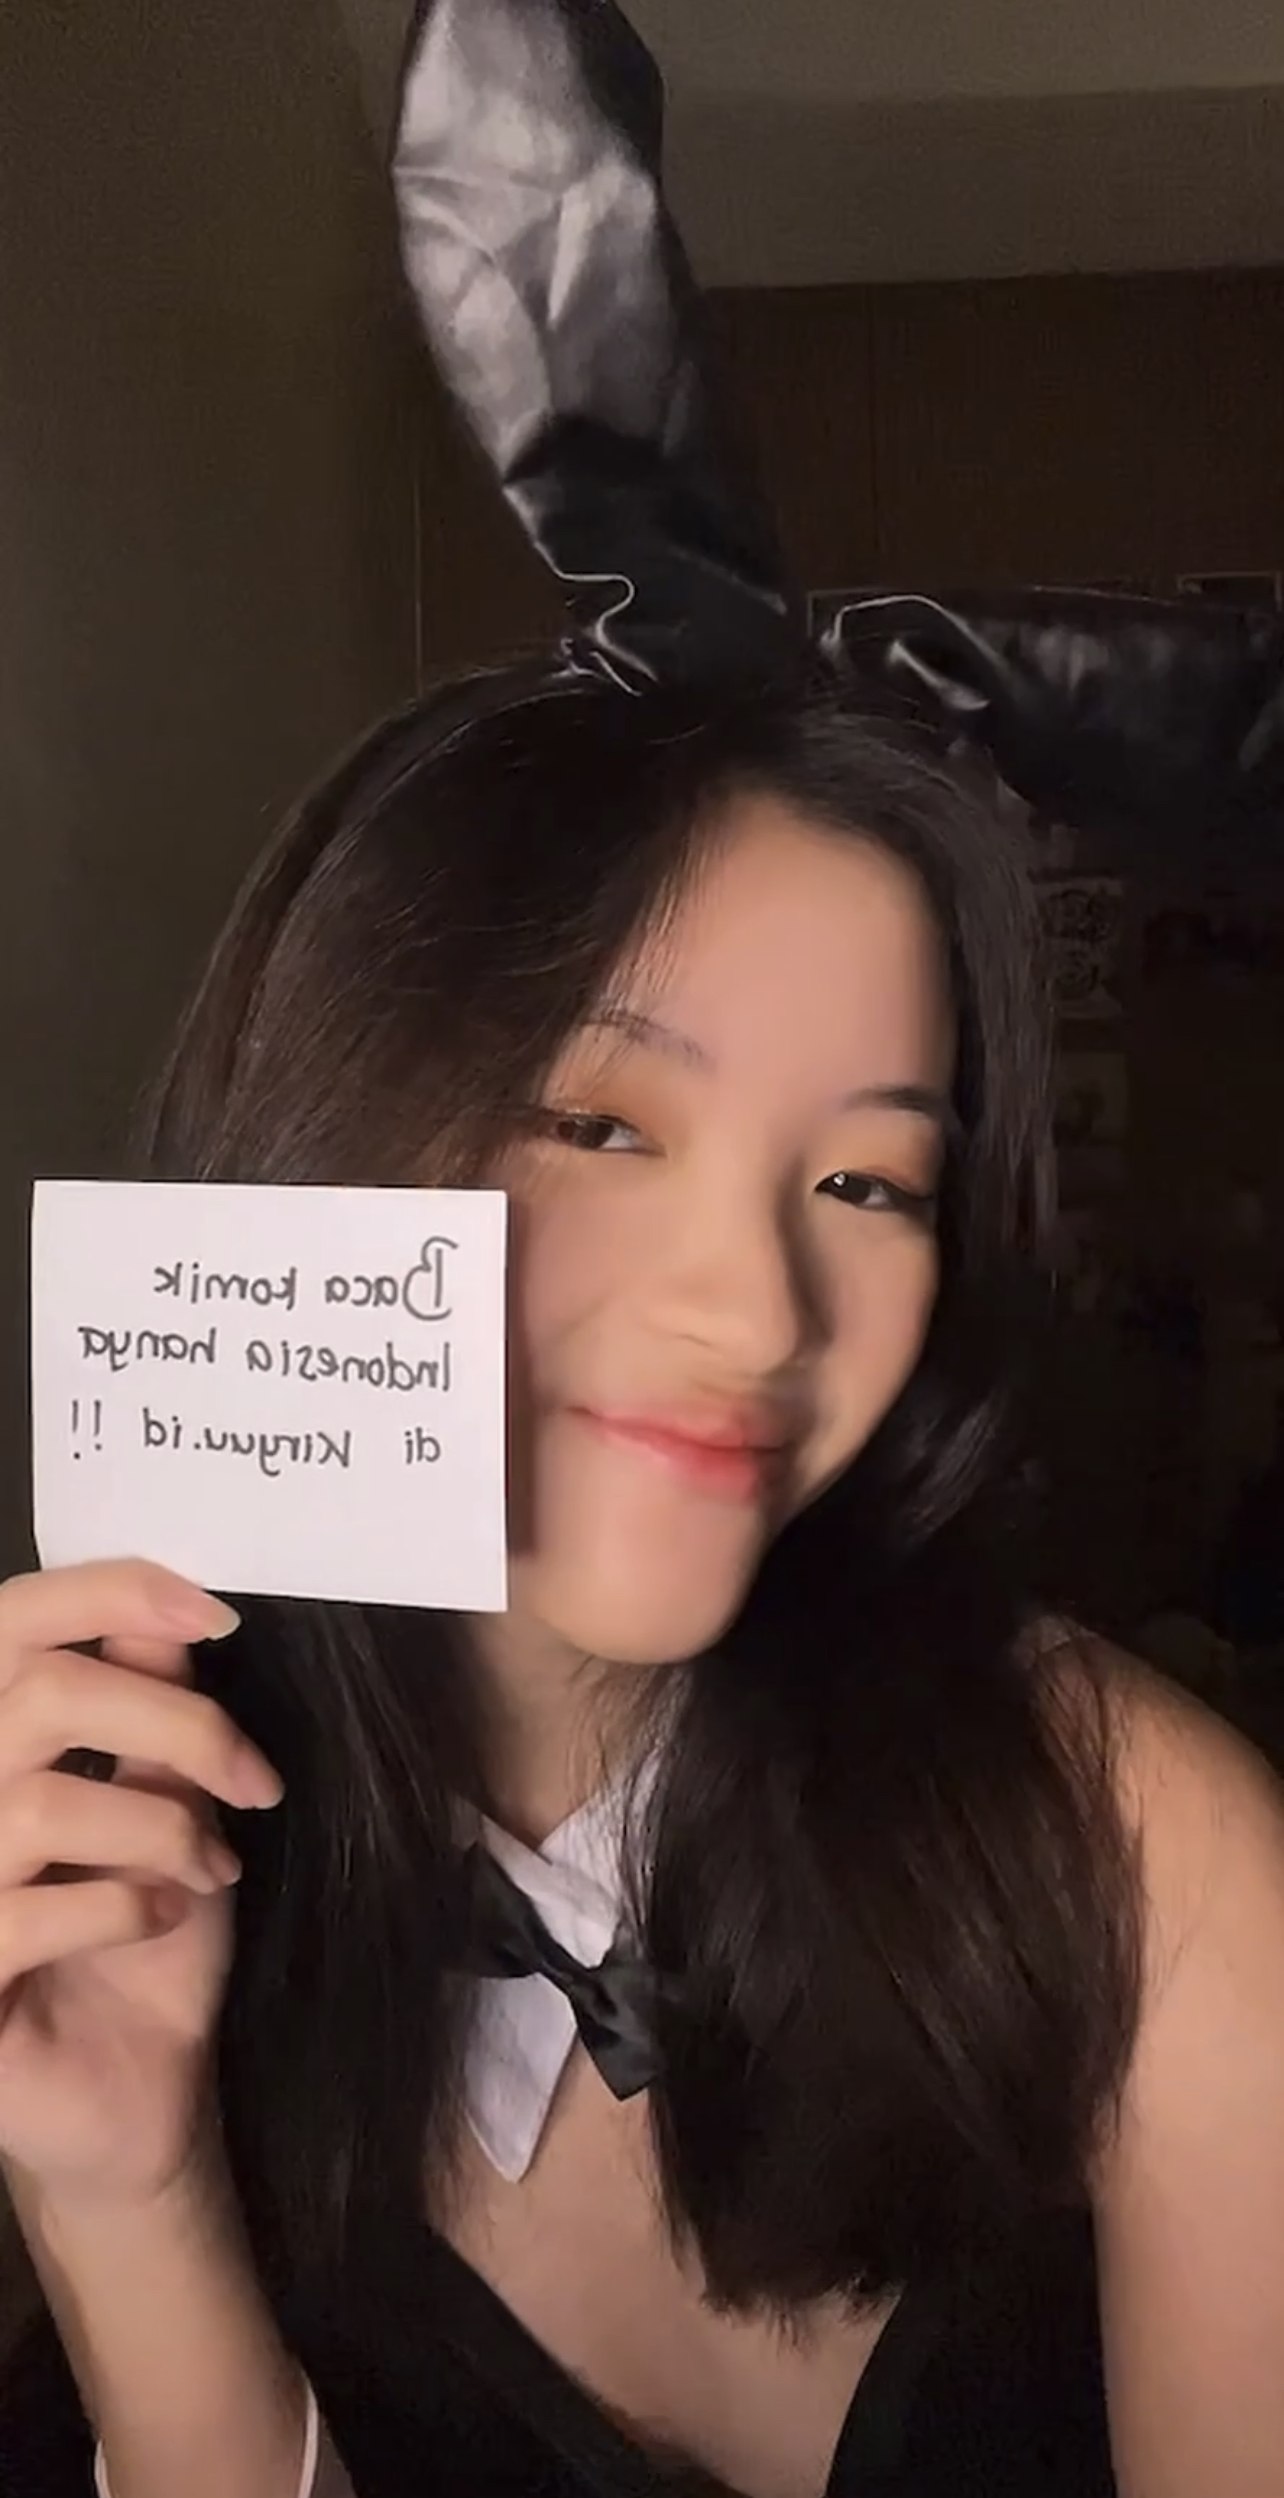 Baca komik
Indonesia hanya
di Kiryuu.id !!